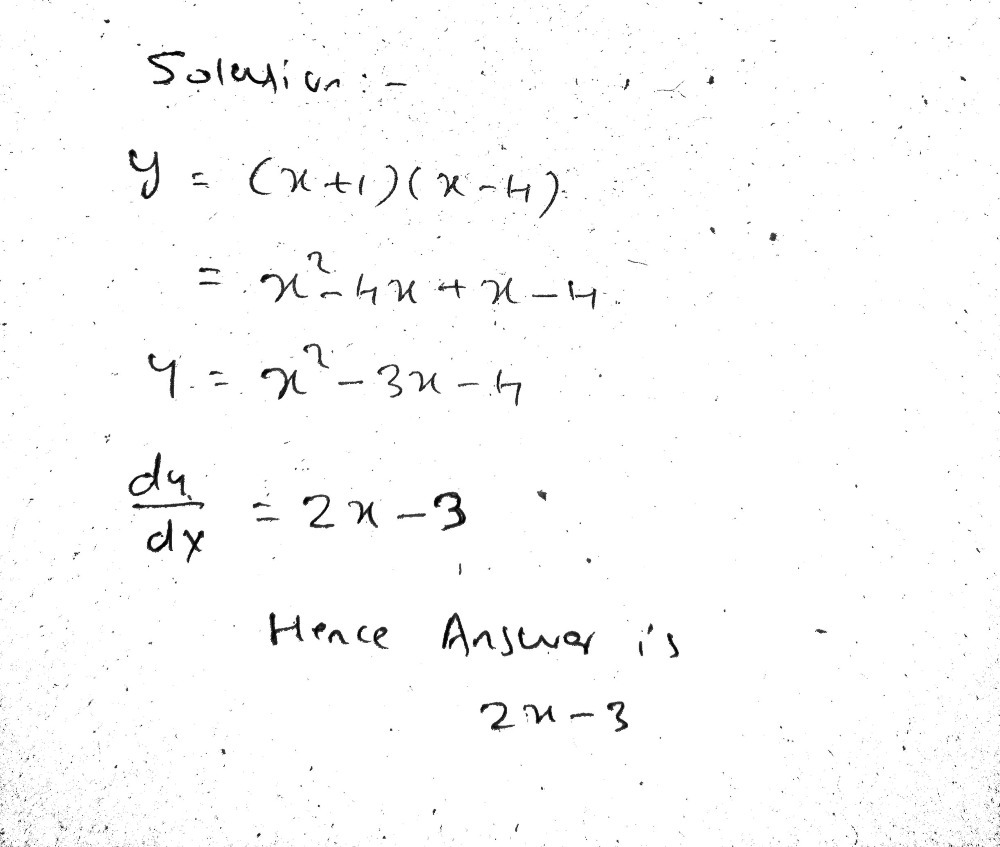 Solution :-
y = (x+1)(x-4)
= x²-4x+x-4
y = x²-3x-4
dy/dx = 2x-3
Hence Answer is
2x-3